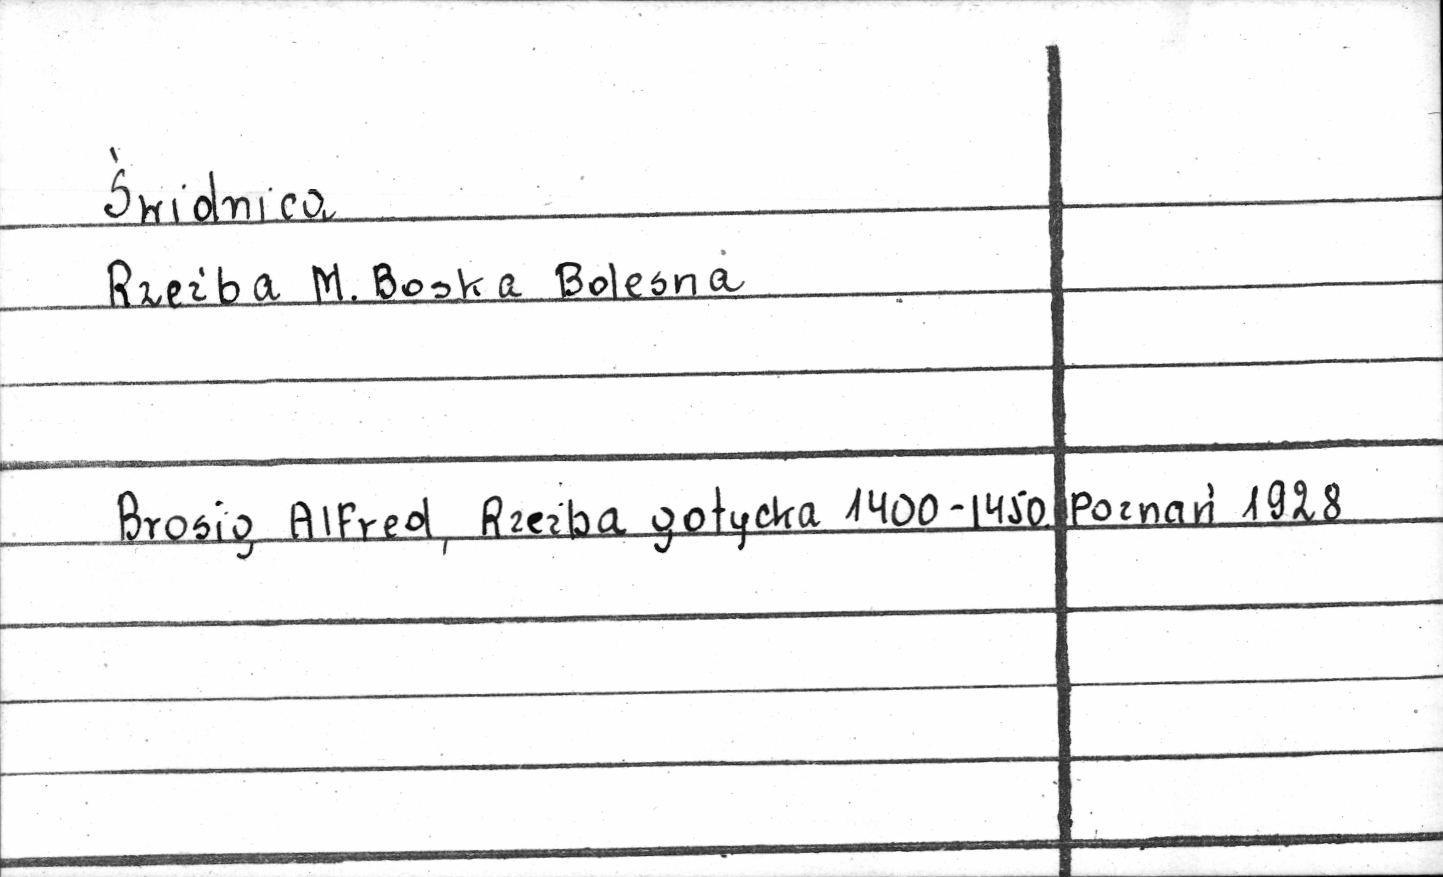 Świdnica
Rzeźba M. Boska Bolesna
Brosig Alfred, Rzeźba gotycka 1400-1450 Poznań 1928